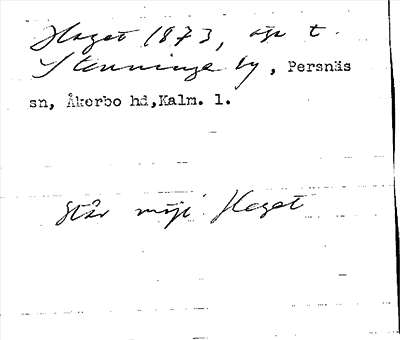 Haget 1873, äga t.
Stenninge by, Persnäs
sn, Åkerbo hd,Kalm. l.
Står möjl. Haget